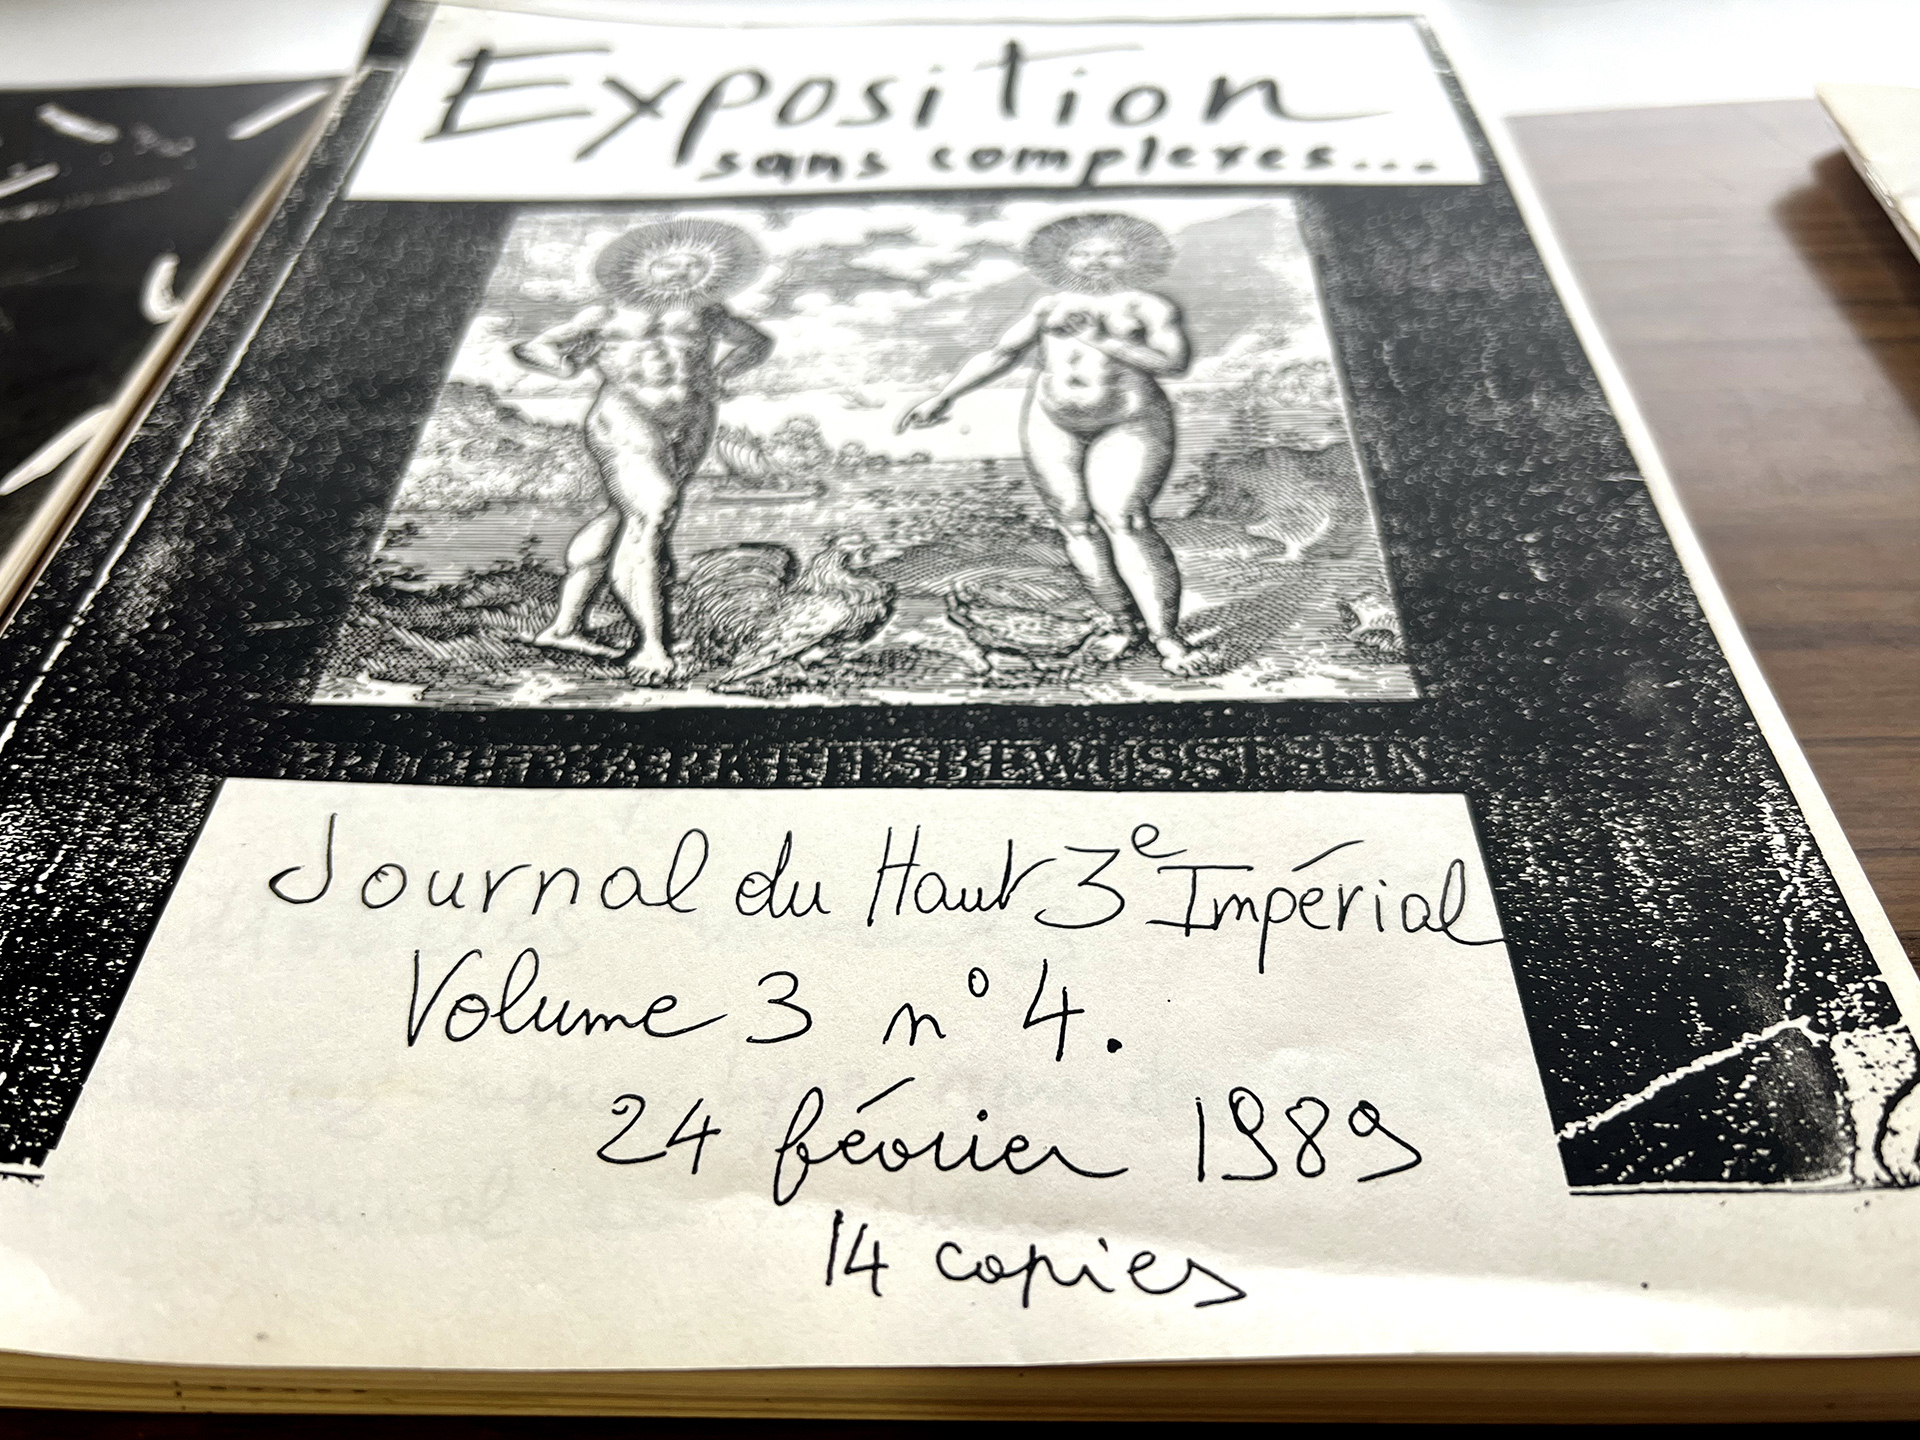 Exposition
sans complexes...
Journal du Haut 3e Impérial
Volume 3 n° 4.
24 février 1989
14 copies